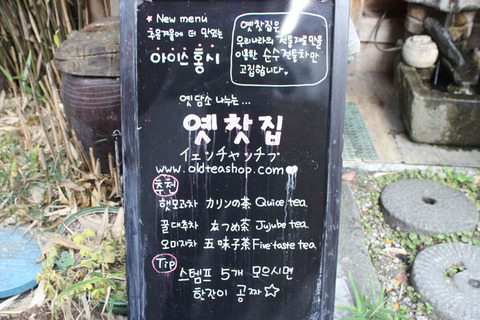 * New menu
추운겨울에 더 맛있는
아이스홍시
옛찻집은
우리나라의 전통재료만을
이용한 순수전통차만
고집합니다.
옛 담소 나누는...
옛찻집
イェッチャッチプ
www.oldteashop.com
추천
햇모과차 カリンの茶 Quice tea
꿀대추차 なつめ茶 Jujube tea
오미자차 五味子茶 Five taste tea
Tip
스템프 5개 모으시면
한잔이 공짜☆